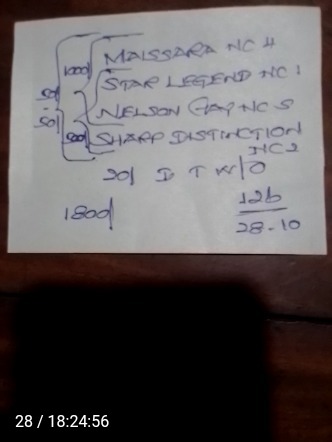 1000/ MAISSARA NC 4
50/ STAR LEGEND NC 1
50/ NELSON GAY NC 5
500/ SHARP DISTINCTION
NC 2
20/ D T W/O
1800/ 126
28-10
28 / 18:24:56